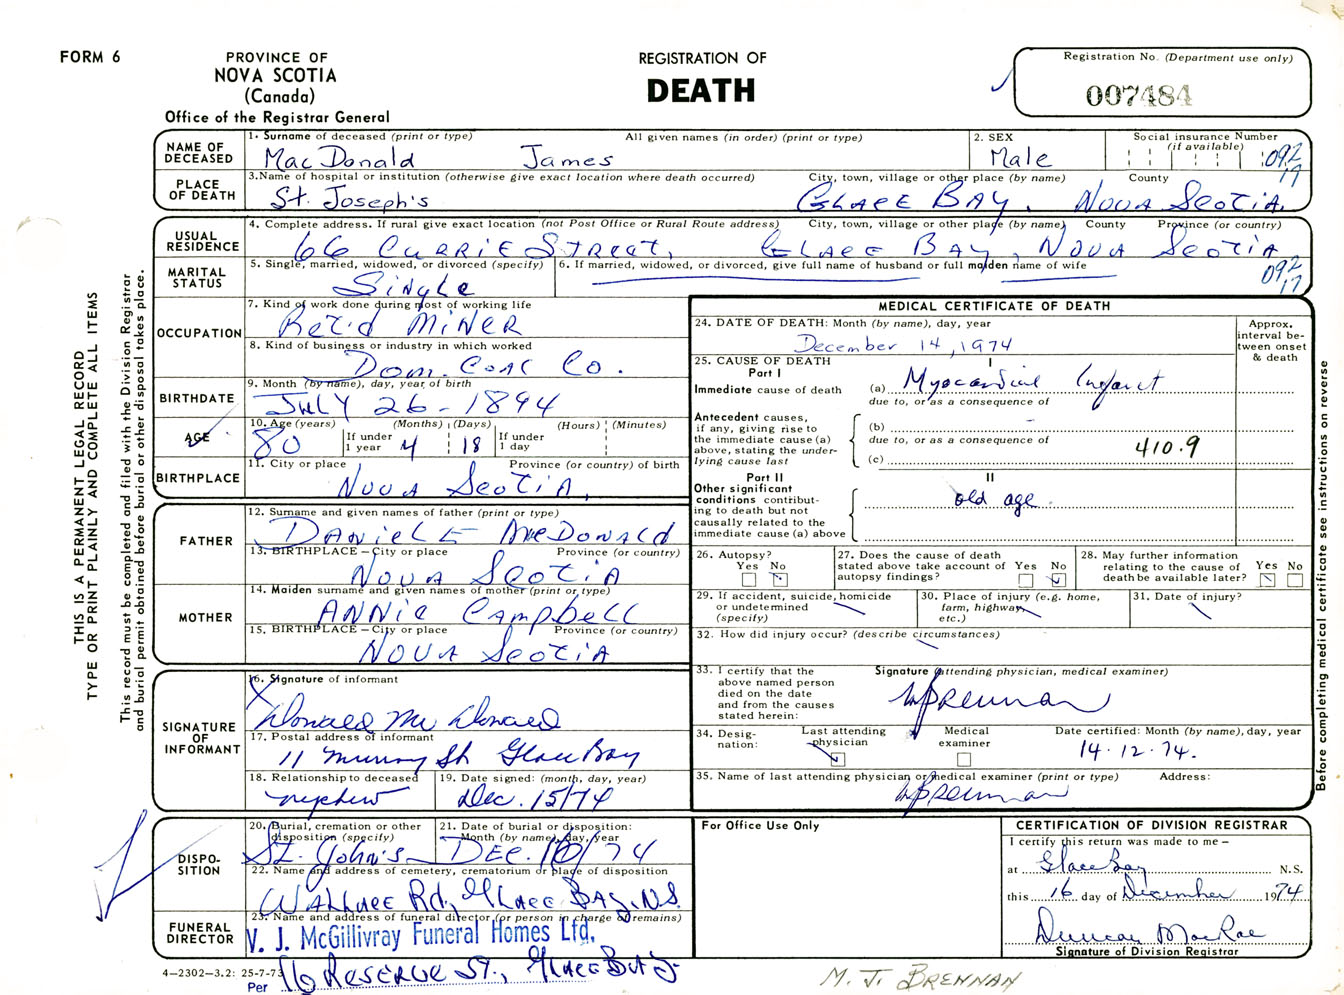 FORM 6
PROVINCE OF
NOVA SCOTIA
(Canada)
Office of the Registrar General
REGISTRATION OF
DEATH
Registration No. (Department use only)
007484
THIS IS A PERMANENT LEGAL RECORD
TYPE OR PRINT PLAINLY AND COMPLETE ALL ITEMS
This record must be completed and filed with the Division Registrar
and burial permit obtained before burial or other disposal takes place.
NAME OF DECEASED
1. Surname of deceased (print or type) All given names (in order) (print or type)
MacDonald James
2. SEX
Male
Social insurance Number
(if available)
092
17
PLACE OF DEATH
3. Name of hospital or institution (otherwise give exact location where death occurred) City, town, village or other place (by name) County
St. Joseph's Glace Bay, Nova Scotia.
USUAL RESIDENCE
4. Complete address. If rural give exact location (not Post Office or Rural Route address) City, town, village or other place (by name) County Province (or country)
66 Currie Street, Glace Bay, Nova Scotia
092
17
MARITAL STATUS
5. Single, married, widowed, or divorced (specify)
Single
6. If married, widowed, or divorced, give full name of husband or full maiden name of wife
OCCUPATION
7. Kind of work done during most of working life
Ret'd Miner
8. Kind of business or industry in which worked
Dom. Coal Co.
BIRTHDATE
9. Month (by name), day, year of birth
July 26 - 1894
AGE
10. Age (years) (Months) (Days) (Hours) (Minutes)
80 If under 1 year 4 18 If under 1 day
BIRTHPLACE
11. City or place Province (or country) of birth
Nova Scotia,
FATHER
12. Surname and given names of father (print or type)
Daniel McDonald
13. BIRTHPLACE – City or place Province (or country)
Nova Scotia
MOTHER
14. Maiden surname and given names of mother (print or type)
Annie Campbell
15. BIRTHPLACE – City or place Province (or country)
Nova Scotia
SIGNATURE OF INFORMANT
16. Signature of informant
X Donald Mc Donald
17. Postal address of informant
11 Murray St Glace Bay
18. Relationship to deceased
nephew
19. Date signed: (month, day, year)
Dec. 15/74
DISPOSITION
20. Burial, cremation or other disposition (specify)
St. John's
21. Date of burial or disposition: Month (by name), day, year
Dec. 16/74
22. Name and address of cemetery, crematorium or place of disposition
Wallace Rd, Glace Bay, N.S.
FUNERAL DIRECTOR
23. Name and address of funeral director (or person in charge of remains)
V. J. McGillivray Funeral Homes Ltd.
Per 16 Reserve St., Glace Bay
4–2302–3.2: 25-7-73
MEDICAL CERTIFICATE OF DEATH
24. DATE OF DEATH: Month (by name), day, year
December 14, 1974
Approx. interval between onset & death
25. CAUSE OF DEATH
Part I
I
Immediate cause of death (a) Myocardial Infarct
due to, or as a consequence of
Antecedent causes, if any, giving rise to the immediate cause (a) above, stating the underlying cause last
(b)
due to, or as a consequence of
410.9
(c)
Part II
II
Other significant conditions contributing to death but not causally related to the immediate cause (a) above
old age
26. Autopsy? Yes No
27. Does the cause of death stated above take account of autopsy findings? Yes No
28. May further information relating to the cause of death be available later? Yes No
29. If accident, suicide, homicide or undetermined (specify)
30. Place of injury (e.g. home, farm, highway, etc.)
31. Date of injury?
32. How did injury occur? (describe circumstances)
33. I certify that the above named person died on the date and from the causes stated herein:
Signature (attending physician, medical examiner)
MJBrennan
34. Designation: Last attending physician Medical examiner
Date certified: Month (by name), day, year
14·12·74.
35. Name of last attending physician or medical examiner (print or type) Address:
MJBrennan
Before completing medical certificate see instructions on reverse
For Office Use Only
CERTIFICATION OF DIVISION REGISTRAR
I certify this return was made to me –
at Glace Bay N.S.
this 16 day of December 1974
Duncan MacRae
Signature of Division Registrar
M. J. BRENNAN